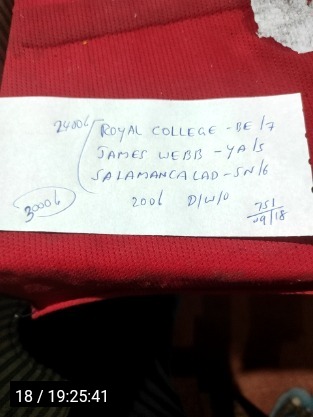 2400 L
ROYAL COLLEGE - BE/7
JAMES WEBB - YA/5
SALAMANCA LAD - SN/6
3000 L
200 L D/W/O
751
09/18
18 / 19:25:41